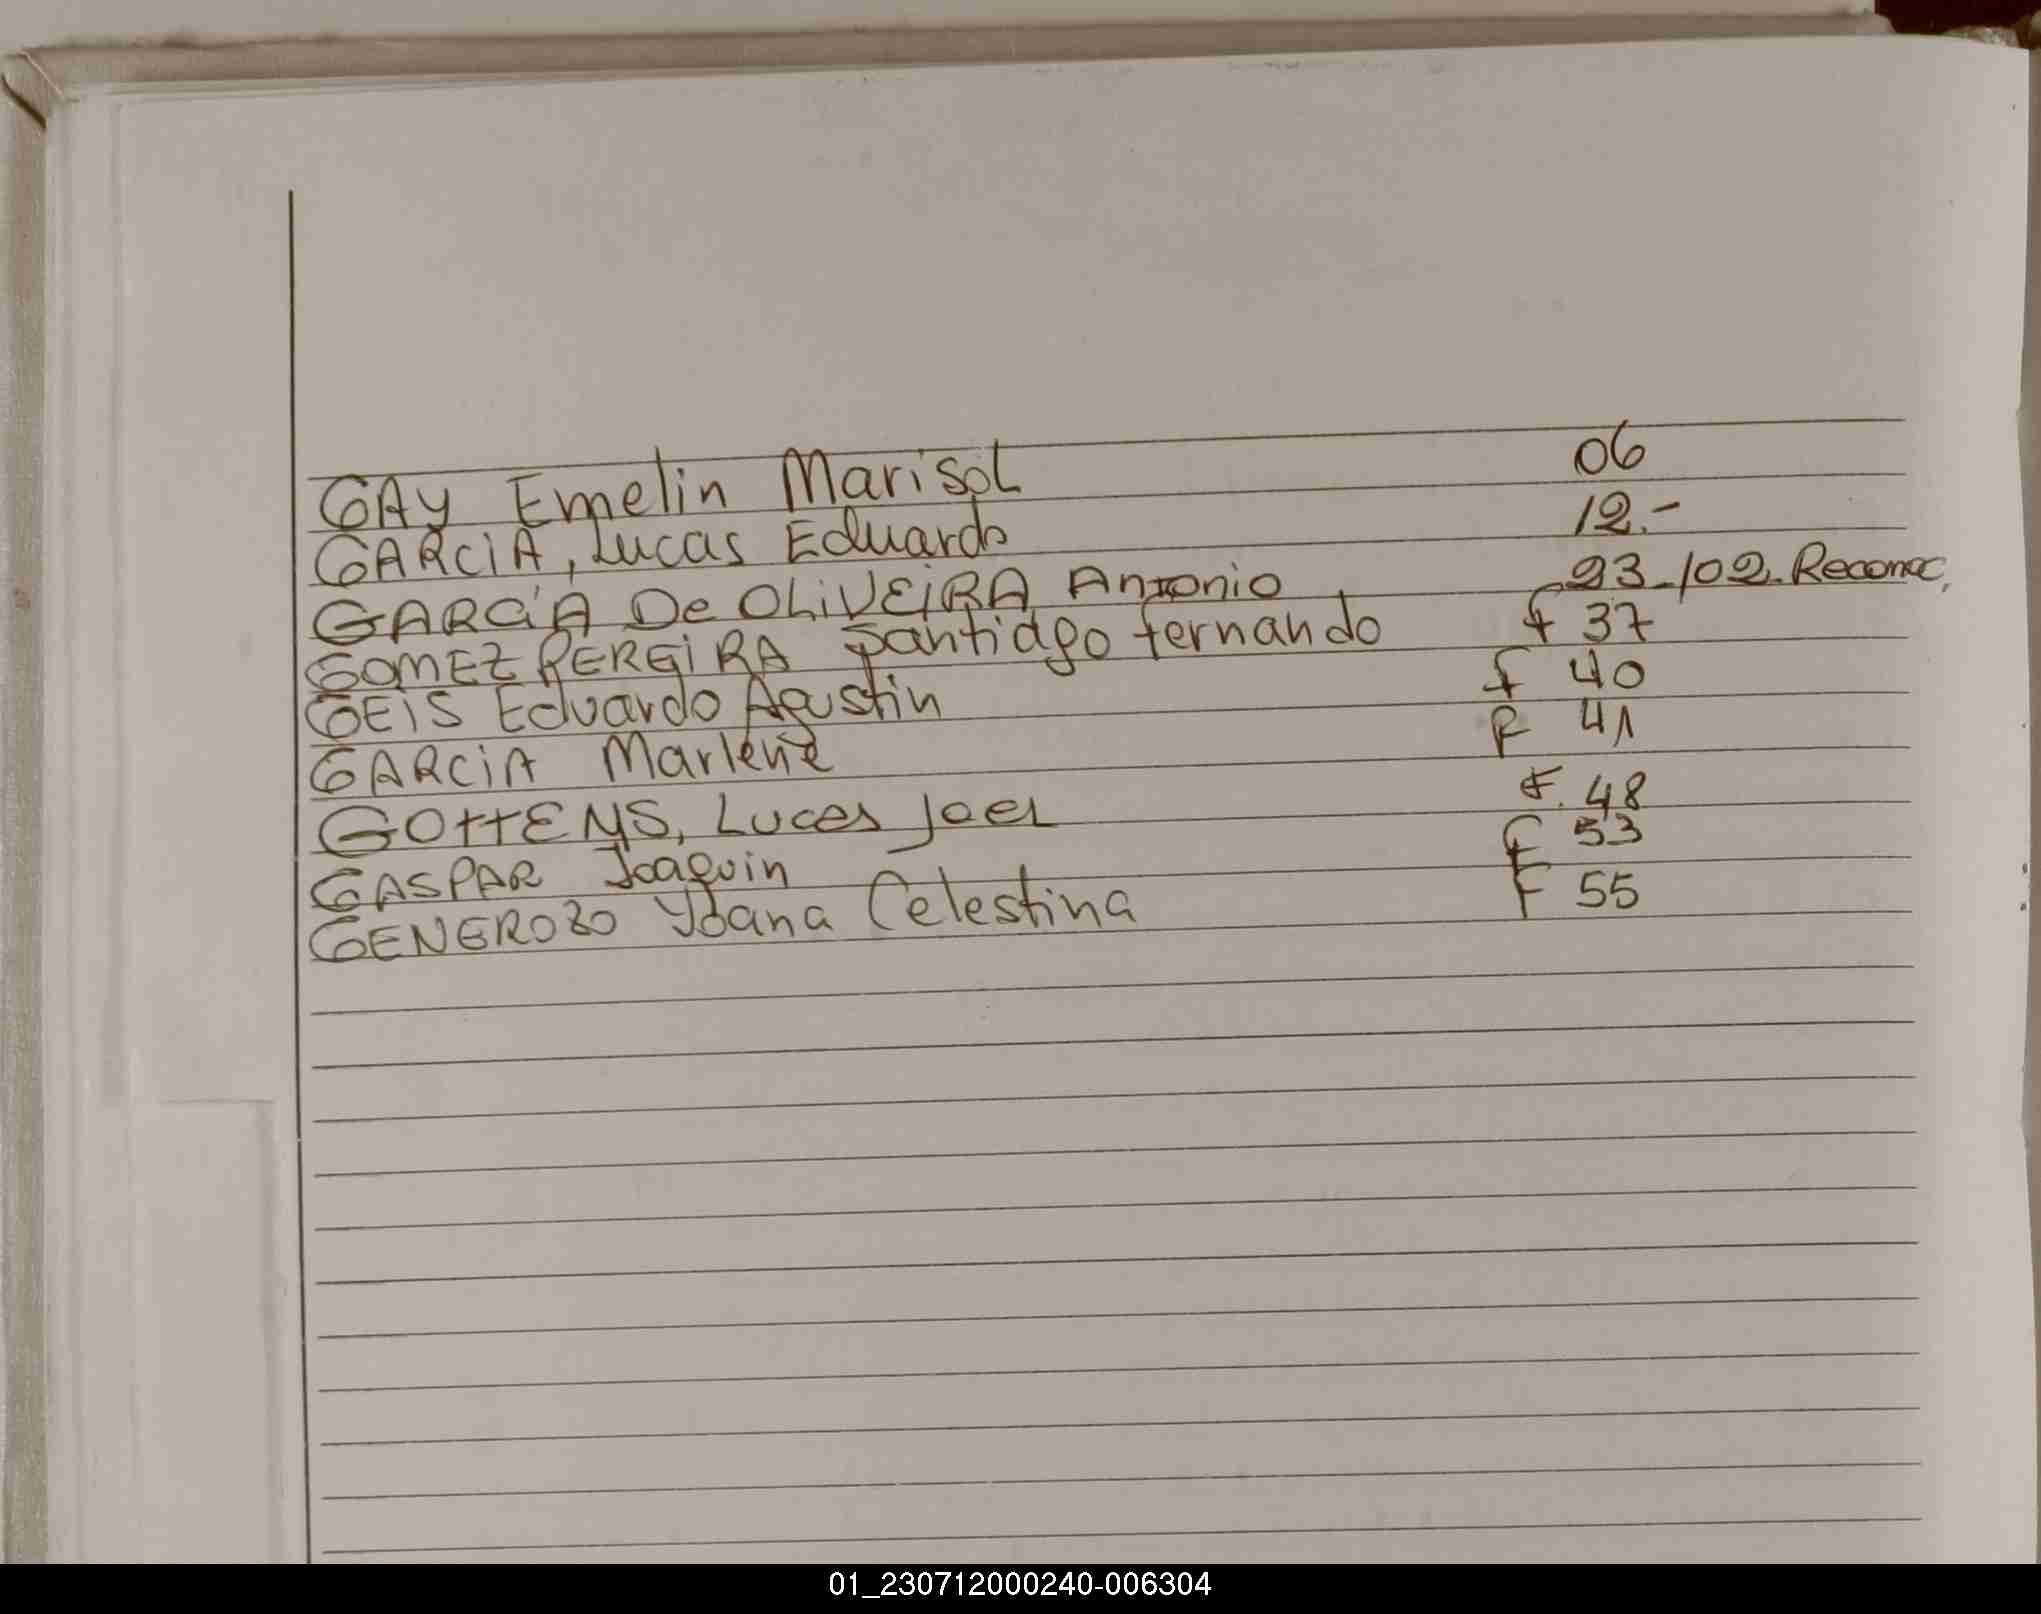 GAY Emelin Marisol 06
GARCIA, Lucas Eduardo 12.-
GARCÍA De OLIVEIRA Antonio 23-/02. Reconoc,
GOMEZ PEREIRA Santiago fernando f 37
GEIS Eduardo Agustin f 40
GARCIA Marlene F 41
GOTTENS, Lucas Joel F. 48
GASPAR Joaquin F 53
GENEROZO Yoana Celestina F 55
01_230712000240-006304